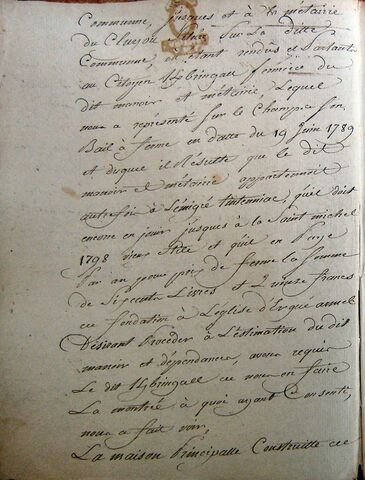 Commune, jusques et à la métairie
du Cluzou sur La ditte
Commune, et étant rendus et Parlant
au Citoyen fermier du
dit manoir et métairie, Lequel
nous a représenté sur le Champ Son
Bail à ferme en datte du 19 juin 1789
et duquel il Résulte que le dit
manoir et métairie appartenoit
autrefois à Tinteniac, qu'il doit
encore en jouir jusques à la Saint michel
1798 vieux stile et qu'il en Paye
Par an pour prix de ferme la somme
de Sept cents Livres et francs
de fondation à L'église d'Ergué armel
Désirant Procéder à L'estimation du dit
manoir et dépendances, avons requis
Le dit de nous en faire
La montrée à quoi ayant Consenti,
nous a fait voir,
La maison Principalle Construitte de